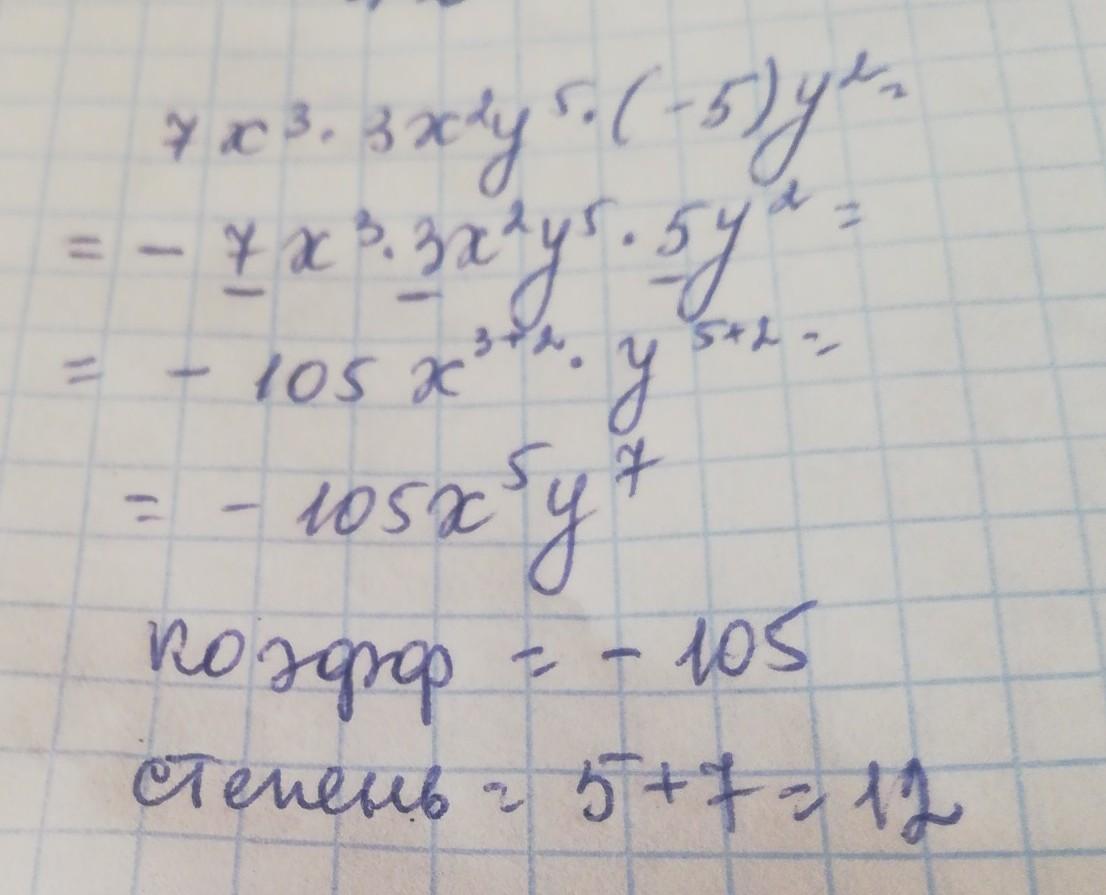 7x³ · 3x²y⁵ · (-5)y² =
= - 7x³ · 3x²y⁵ · 5y² =
= - 105 x³⁺² · y⁵⁺² =
= - 105x⁵y⁷
коэфф = - 105
степень = 5 + 7 = 12